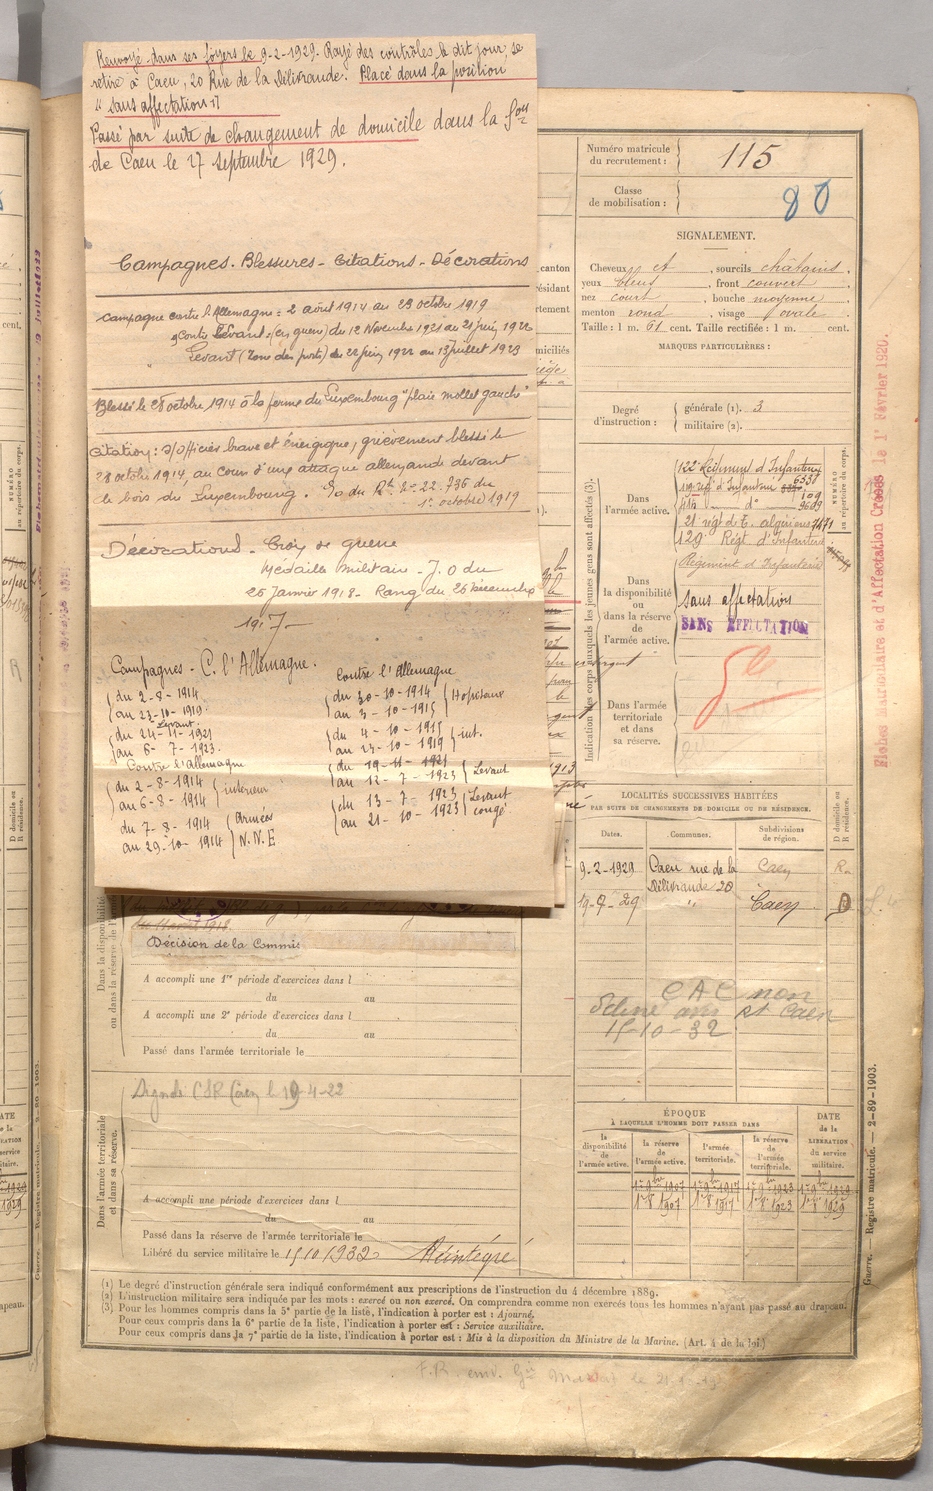 Renvoyé dans ses foyers le 9-2-1929. Rayé des contrôles le dit jour, se
retire à Caen, 20 Rue de la Délivrande. Placé dans la position
"sans affectation"
Passé par suite de changement de domicile dans la Son
de Caen le 27 septembre 1929.
Campagnes. Blessures - Citations - Décorations
Campagne contre l'Allemagne = 2 août 1914 au 23 octobre 1919
Contre Levant (en guerre) du 12 Novembre 1921 au 21 juin 1922
" Levant (Zone des ports) de 22 juin 1922 au 13 juillet 1923
Blessé le 28 octobre 1914 à la ferme du Luxembourg "plaie mollet gauche"
Citation: S/officier brave et énergique, grièvement blessé le
28 octobre 1914, au cours d'une attaque allemande devant
le bois du Luxembourg. du Rt 22.736 du
1er octobre 1919
Décorations - Croix de guerre
Médaille Militaire - J.O du
26 Janvier 1918 - Rang du 26 Décembre
1917 -
Campagnes - C. l'Allemagne.
du 2-8-1914
au 23-10-1919
Levant.
du 24-11-1921
au 6-7-1923.
Contre l'Allemagne
du 2-8-1914
au 6-8-1914 intérieur
du 7-8-1914
au 29-10-1914 Armées N.N.E
Contre l'Allemagne
du 30-10-1914
au 3-10-1915 Hopitaux
du 4-10-1915
au 23-10-1919 int.
du 19-11-1921
au 12-7-1923 Levant
du 13-7-1923
au 21-10-1923 Levant congé
Numéro matricule
du recrutement : 115
Classe
de mobilisation : 80
SIGNALEMENT.
Cheveux et , sourcils châtains ,
yeux bleus , front couvert ,
nez court , bouche moyenne ,
menton rond , visage ovale .
Taille : 1 m. 61 cent. Taille rectifiée : 1 m. cent.
MARQUES PARTICULIÈRES :
Degré
d'instruction :
générale (1). 3
militaire (2).
Indication des corps auxquels les jeunes gens sont affectés (3).
NUMÉRO
au répertoire du corps.
Dans
l'armée active.
122e Régiment d'Infanterie
d'Infanterie 6338
d° 9609
21 régt de T. algériens 7471
129 Régt d'Infanterie
Dans
la disponibilité
ou
dans la réserve
de
l'armée active.
Régiment d'Infanterie
sans affectation
SANS AFFECTATION
Dans l'armée
territoriale
et dans
sa réserve.
LOCALITÉS SUCCESSIVES HABITÉES
PAR SUITE DE CHANGEMENTS DE DOMICILE OU DE RÉSIDENCE.
Dates. Communes. Subdivisions
de région.
D domicile ou
R résidence.
9-2-1929 Caen rue de la Délivrande 20 Caen R
19-9-29 " Caen D
CAC non
et Caen
15-10-32
ÉPOQUE
À LAQUELLE L'HOMME DOIT PASSER DANS
la
disponibilité
de
l'armée active.
la réserve
de
l'armée active.
l'armée
territoriale.
la réserve
de
l'armée
territoriale.
DATE
de la
LIBÉRATION
du service
militaire.
1er 9bre 1907 1er 9bre 1917 1er 9bre 1923 1er 9bre 1929
1er 8 1907 1er 8 1917 1er 8 1923 1er 8 1929
Fiches Matriculaire et d'Affectation Créées le 1er Février 1920.
Guerre. — Registre matricule. — 2-89-1903.
Dans la disponibilité
ou dans la réserve de l'
Décision de la Commis
A accompli une 1re période d'exercices dans l
du au
A accompli une 2e période d'exercices dans l
du au
Passé dans l'armée territoriale le
Dans l'armée territoriale
et dans sa réserve.
A accompli une période d'exercices dans l
du au
Passé dans la réserve de l'armée territoriale le
Libéré du service militaire le 15/10/1932 Réintégré
(1) Le degré d'instruction générale sera indiqué conformément aux prescriptions de l'instruction du 4 décembre 1889.
(2) L'instruction militaire sera indiquée par les mots : exercé ou non exercé. On comprendra comme non exercés tous les hommes n'ayant pas passé au drapeau.
(3) Pour les hommes compris dans la 5e partie de la liste, l'indication à porter est : Ajourné.
Pour ceux compris dans la 6e partie de la liste, l'indication à porter est : Service auxiliaire.
Pour ceux compris dans la 7e partie de la liste, l'indication à porter est : Mis à la disposition du Ministre de la Marine. (Art. 4 de la loi.)